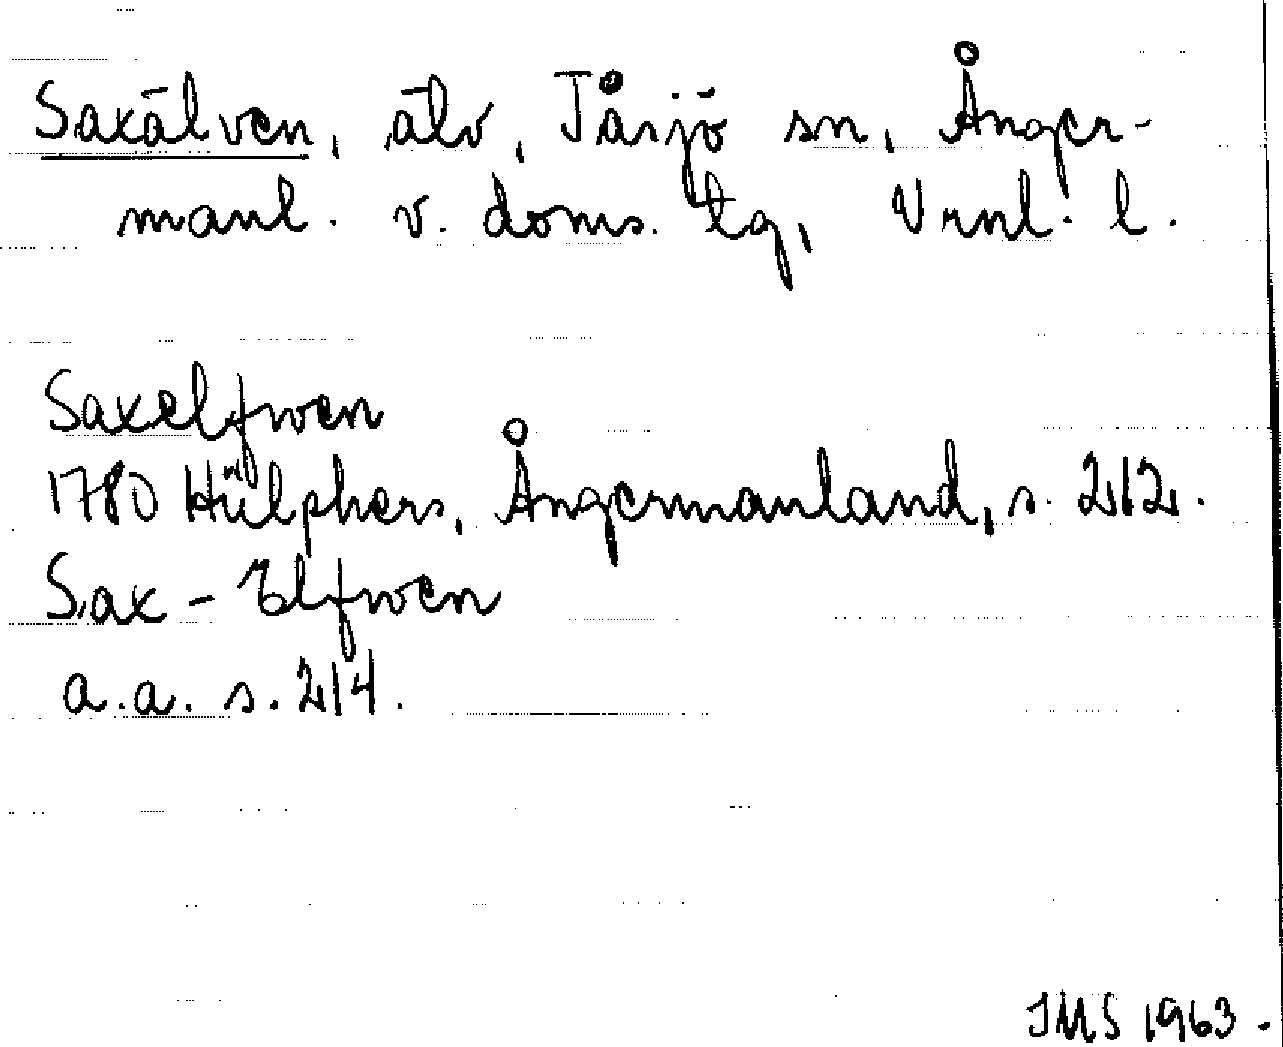 Saxälven, älv, Tåsjö sn, Ånger-
manl. v. doms. tg, Vrnl. l.
Saxelfwen
1780 Hülphers, Ångermanland, s. 212.
Sax-Elfwen
a.a. s. 214.
JMS 1963.